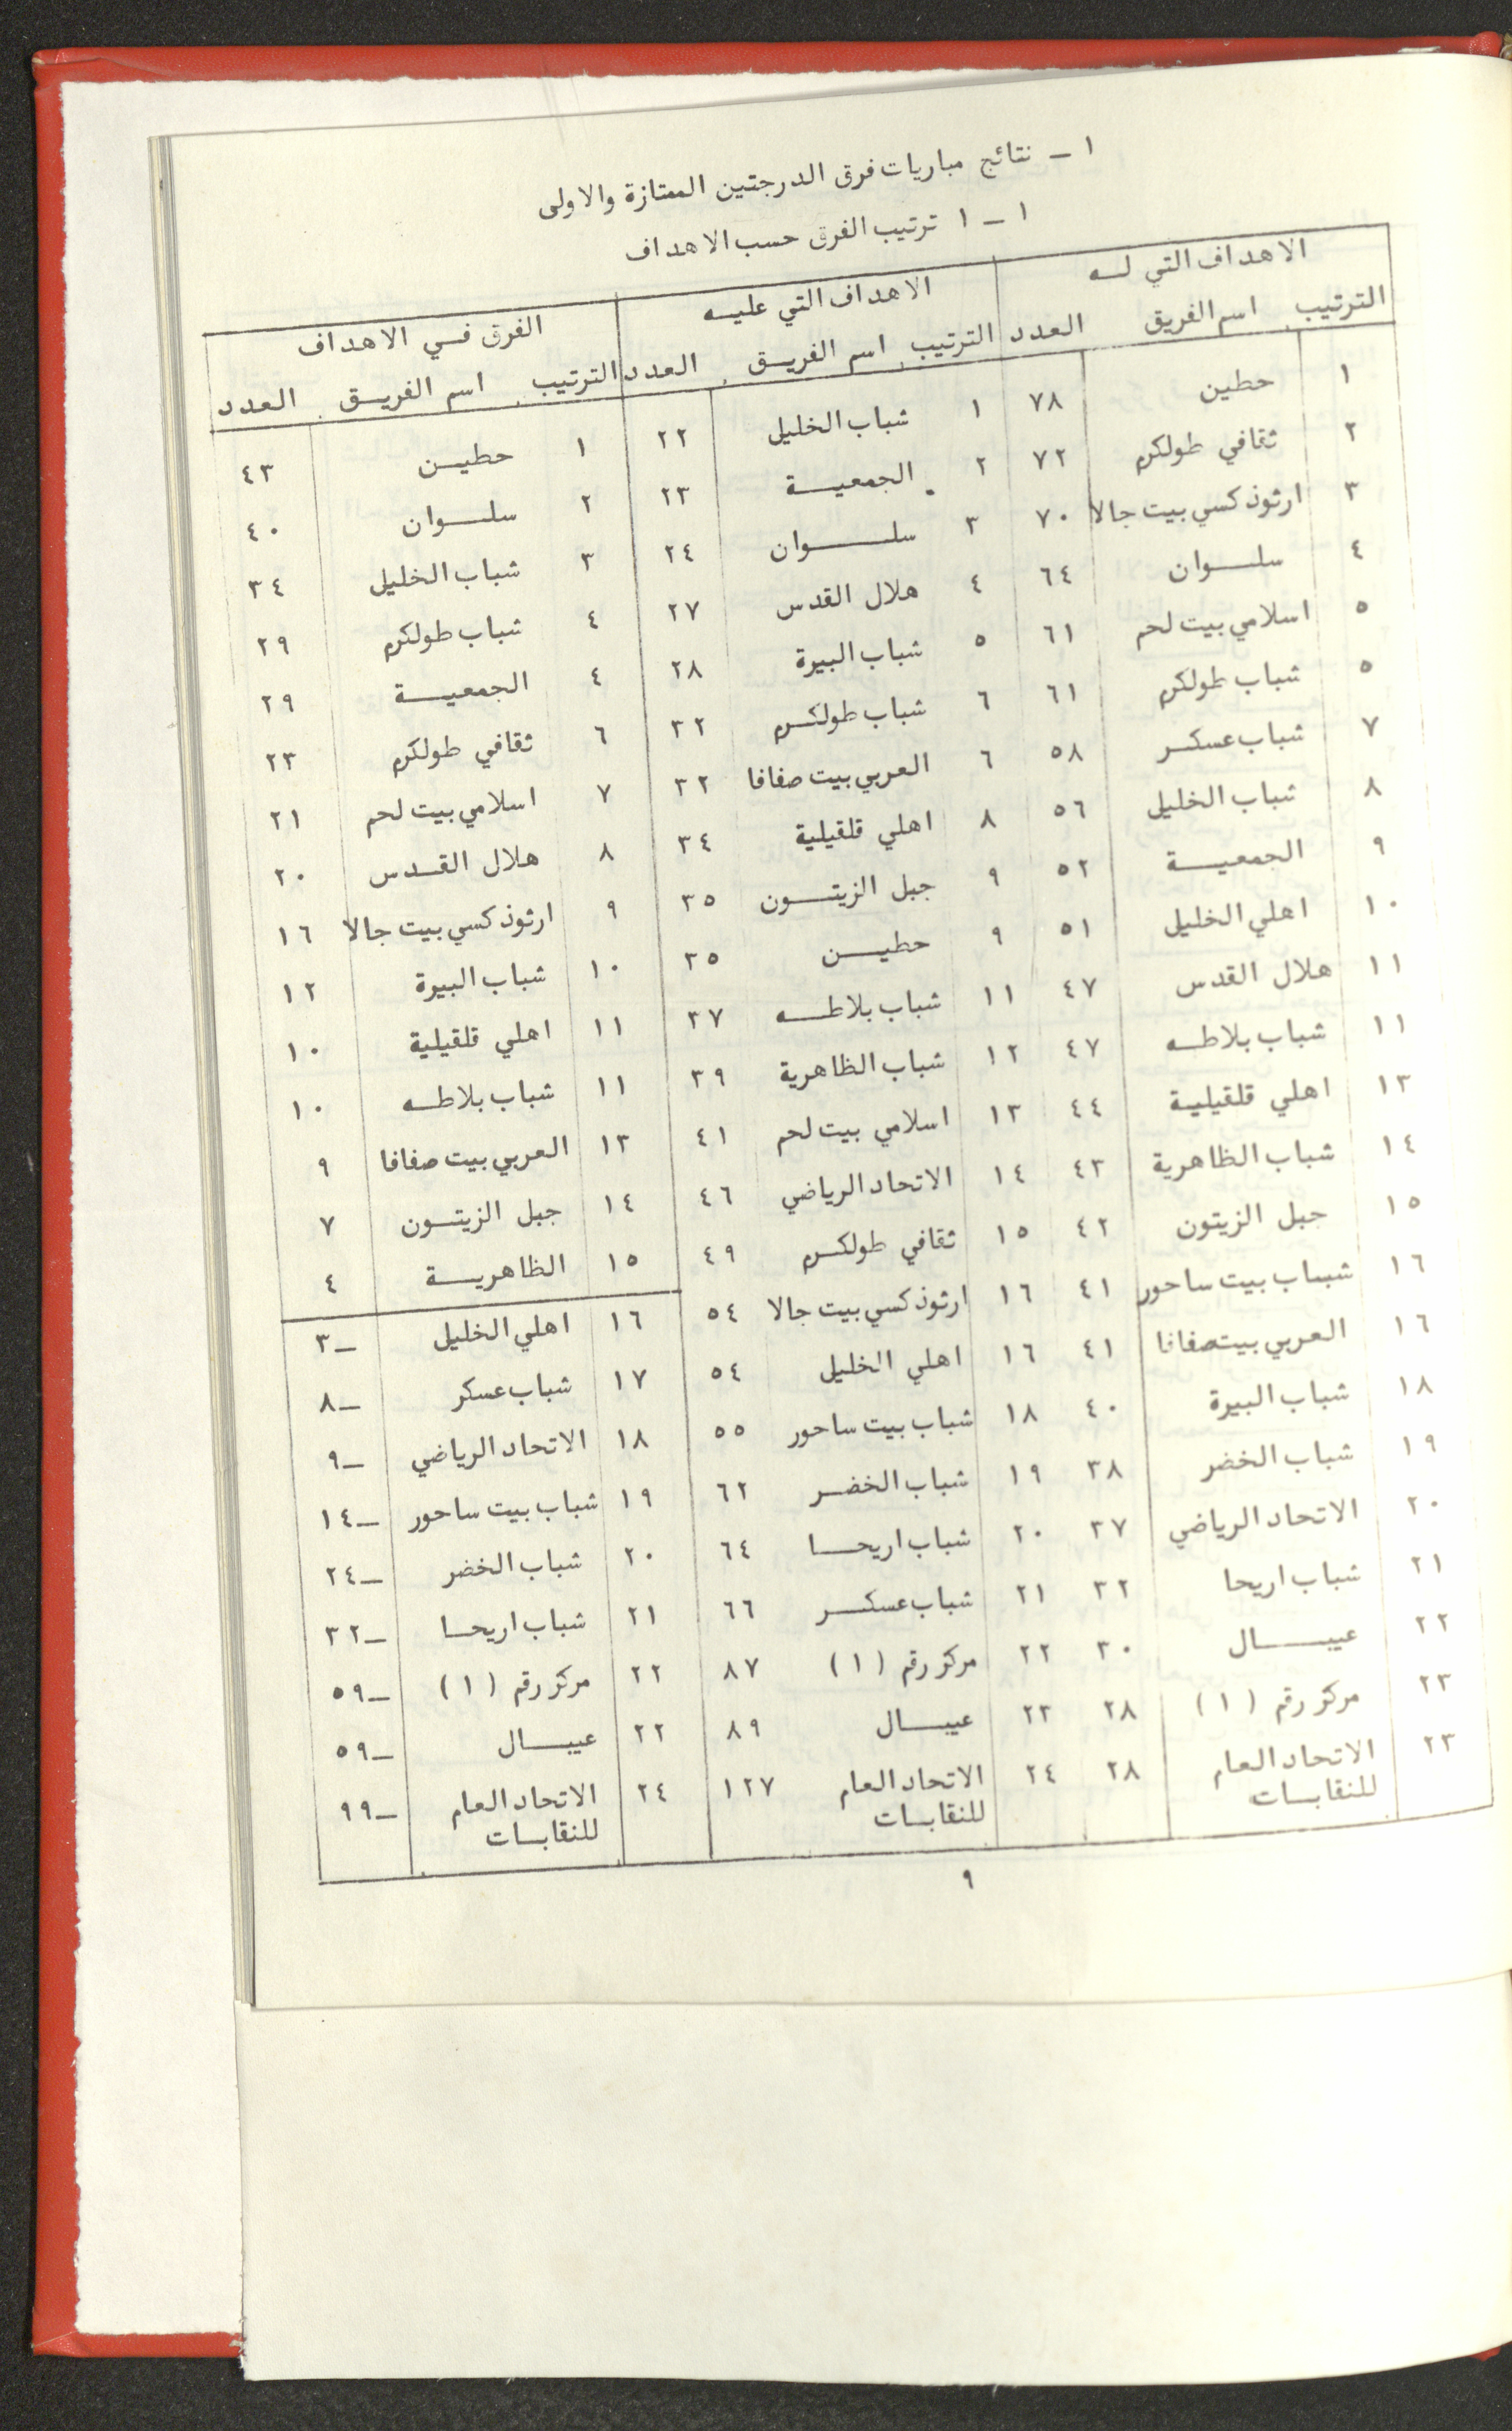 ١ - نتائج مباريات فرق الدرجتين الممتازة والاولى
١ - ١ ترتيب الفرق حسب الاهداف
الاهداف التي له الاهداف التي عليه الفرق في الاهداف
الترتيب اسم الفريق العدد الترتيب اسم الفريق العدد الترتيب اسم الفريق العدد
١ حطين ٧٨ ١ شباب الخليل ٢٢ ١ حطين ٤٣
٢ ثقافي طولكرم ٧٢ ٢ الجمعية ٢٣ ٢ سلوان ٤٠
٣ ارثوذكسي بيت جالا ٧٠ ٣ سلوان ٢٤ ٣ شباب الخليل ٣٤
٤ سلوان ٦٤ ٤ هلال القدس ٢٧ ٤ شباب طولكرم ٢٩
٥ اسلامي بيت لحم ٦١ ٥ شباب البيرة ٢٨ ٤ الجمعية ٢٩
٥ شباب طولكرم ٦١ ٦ شباب طولكرم ٣٢ ٦ ثقافي طولكرم ٢٣
٧ شباب عسكر ٥٨ ٦ العربي بيت صفافا ٣٢ ٧ اسلامي بيت لحم ٢١
٨ شباب الخليل ٥٦ ٨ اهلي قلقيلية ٣٤ ٨ هلال القدس ٢٠
٩ الجمعية ٥٢ ٩ جبل الزيتون ٣٥ ٩ ارثوذكسي بيت جالا ١٦
١٠ اهلي الخليل ٥١ ٩ حطين ٣٥ ١٠ شباب البيرة ١٢
١١ هلال القدس ٤٧ ١١ شباب بلاطه ٣٧ ١١ اهلي قلقيلية ١٠
١١ شباب بلاطه ٤٧ ١٢ شباب الظاهرية ٣٩ ١١ شباب بلاطه ١٠
١٣ اهلي قلقيلية ٤٤ ١٣ اسلامي بيت لحم ٤١ ١٣ العربي بيت صفافا ٩
١٤ شباب الظاهرية ٤٣ ١٤ الاتحاد الرياضي ٤٦ ١٤ جبل الزيتون ٧
١٥ جبل الزيتون ٤٢ ١٥ ثقافي طولكرم ٤٩ ١٥ الظاهرية ٤
١٦ شباب بيت ساحور ٤١ ١٦ ارثوذكسي بيت جالا ٥٤ ١٦ اهلي الخليل -٣
١٦ العربي بيت صفافا ٤١ ١٦ اهلي الخليل ٥٤ ١٧ شباب عسكر -٨
١٨ شباب البيرة ٤٠ ١٨ شباب بيت ساحور ٥٥ ١٨ الاتحاد الرياضي -٩
١٩ شباب الخضر ٣٨ ١٩ شباب الخضر ٦٢ ١٩ شباب بيت ساحور -١٤
٢٠ الاتحاد الرياضي ٣٧ ٢٠ شباب اريحا ٦٤ ٢٠ شباب الخضر -٢٤
٢١ شباب اريحا ٣٢ ٢١ شباب عسكر ٦٦ ٢١ شباب اريحا -٣٢
٢٢ عيبال ٣٠ ٢٢ مركز رقم (١) ٨٧ ٢٢ مركز رقم (١) -٥٩
٢٣ مركز رقم (١) ٢٨ ٢٣ عيبال ٨٩ ٢٢ عيبال -٥٩
٢٣ الاتحاد العام ٢٨ ٢٤ الاتحاد العام ١٢٧ ٢٤ الاتحاد العام -٩٩
للنقابات للنقابات للنقابات
٩